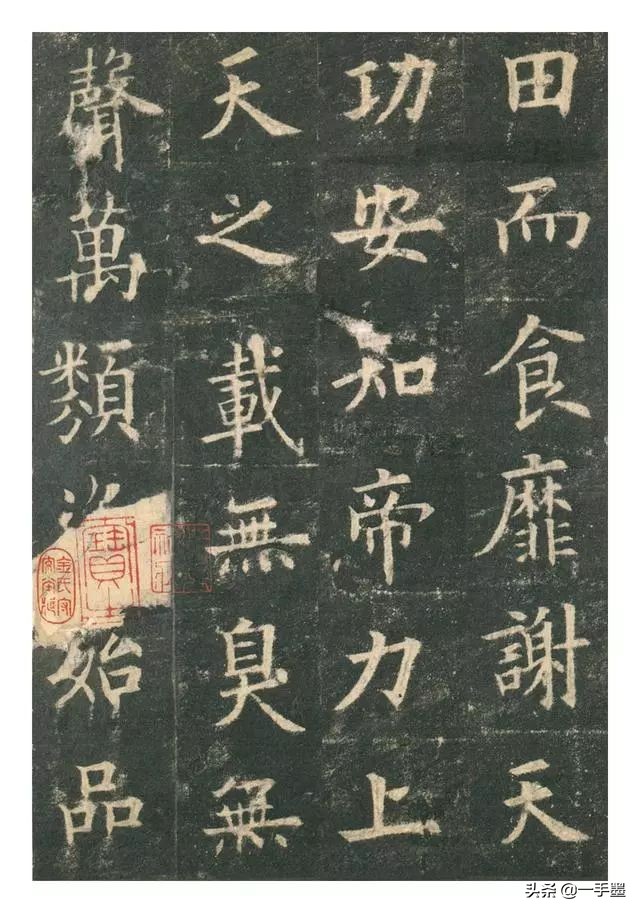 田而食靡謝天
功安知帝力上
天之載無臭無
聲萬類始品
头条 @一手墨